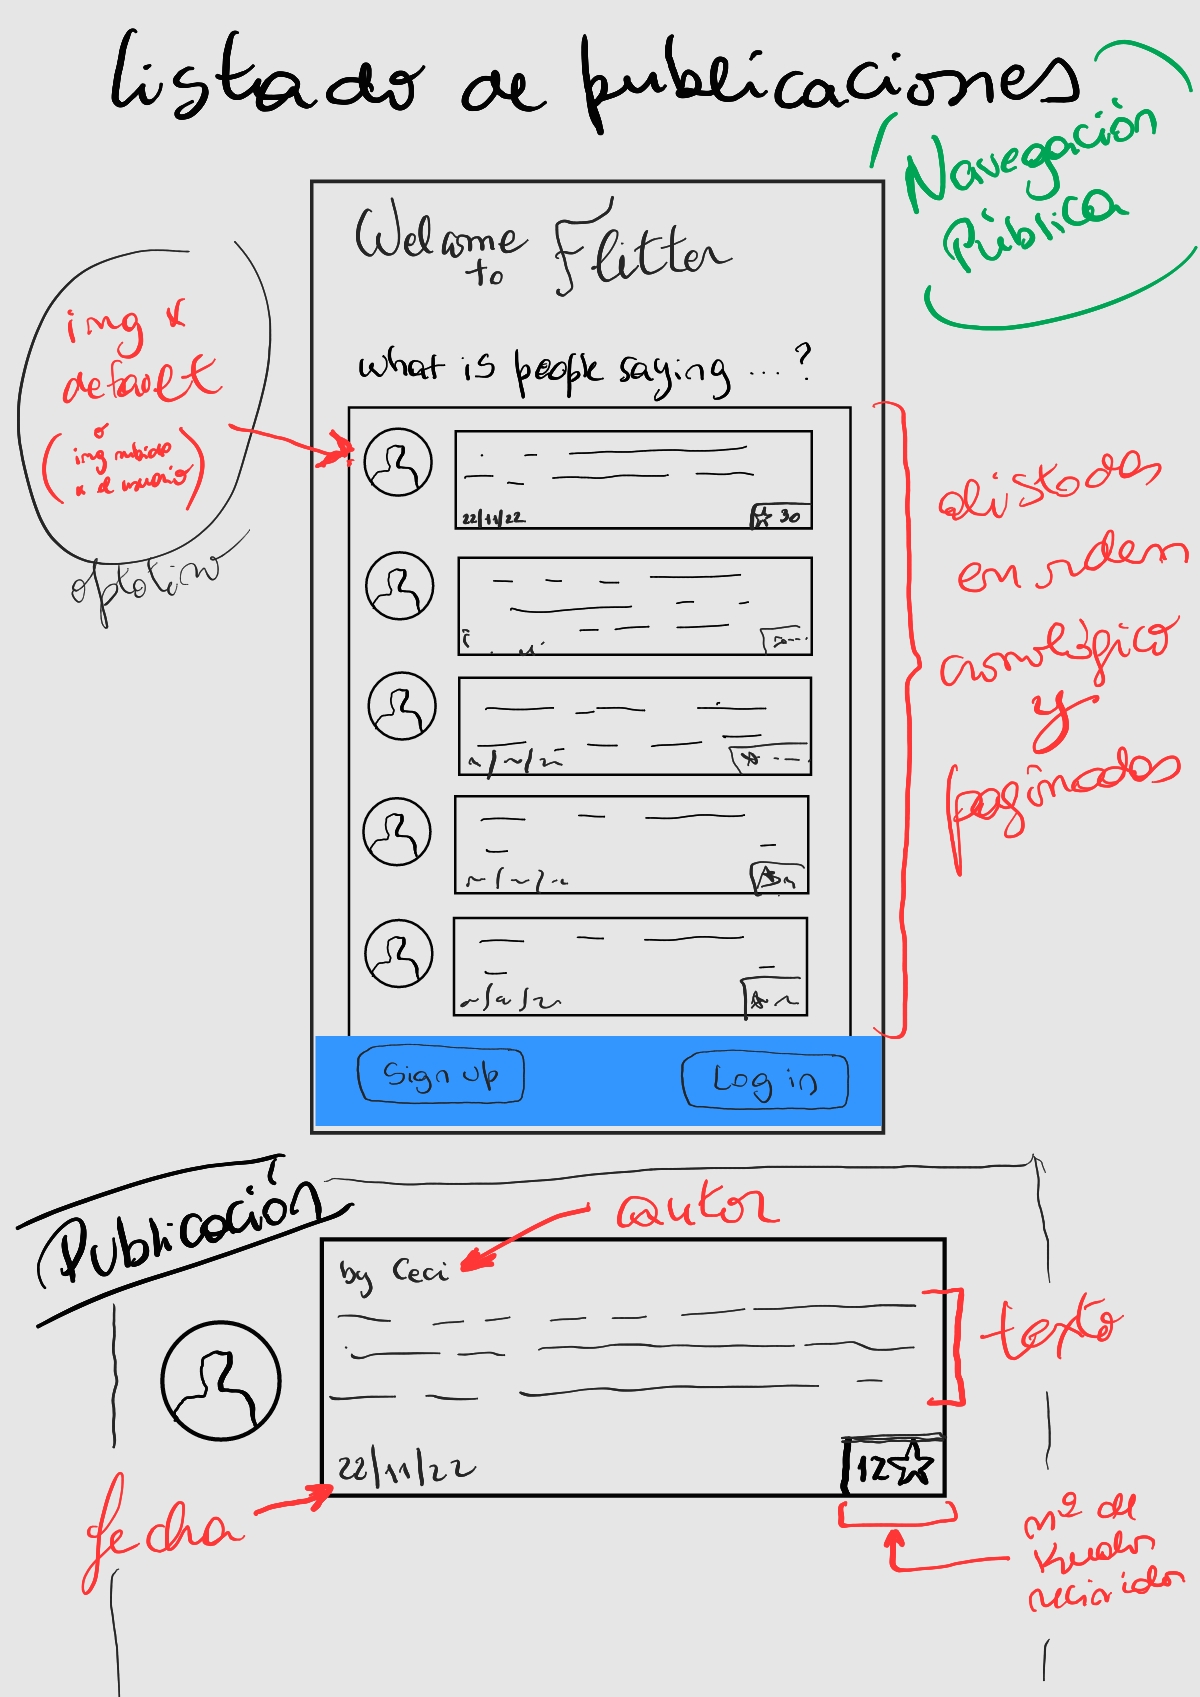 listado de publicaciones
Navegación
Pública
Welcome
to Flitter
what is people saying ... ?
img x
default
o
(img subida
x el usuario)
optativo
22/11/22
☆ 30
alistados
en orden
cronológico
y
paginados
Sign up
Log in
Publicación
autor
by Ceci
texto
22/11/22
12☆
fecha
nº de
Kudos
recibidos